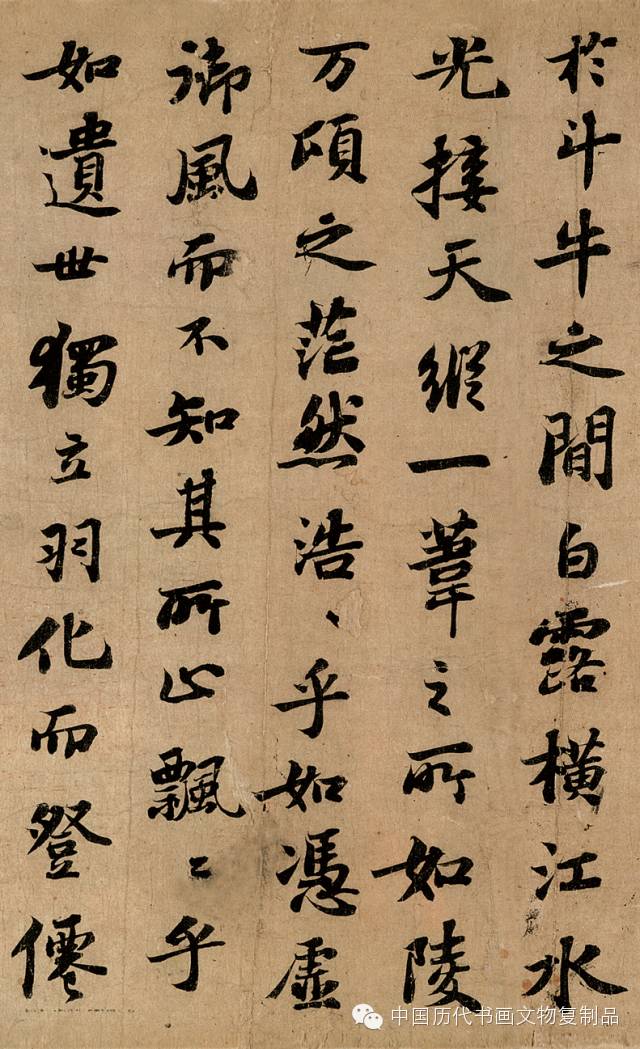 於斗牛之間白露橫江水
光接天縱一葦之所如陵
万頃之茫然浩〻乎如馮虛
御風而不知其所止飄〻乎
如遺世獨立羽化而登僊
中国历代书画文物复制品